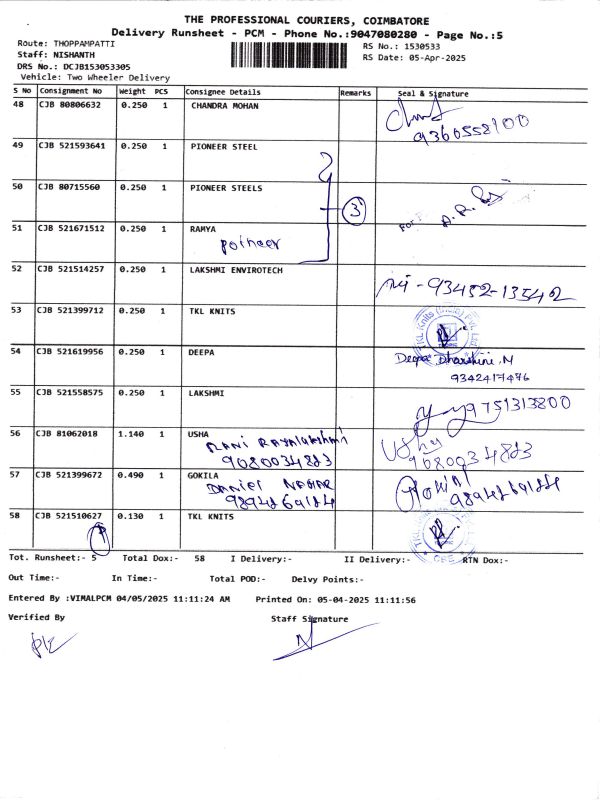 THE PROFESSIONAL COURIERS, COIMBATORE
Delivery Runsheet - PCM - Phone No.:9047080280 - Page No.:5
Route: THOPPAMPATTI
Staff: NISHANTH
DRS No.: DCJB153053305
Vehicle: Two Wheeler Delivery
RS No.: 1530533
RS Date: 05-Apr-2025
S No Consignment No Weight PCS Consignee Details Remarks Seal & Signature
48 CJB 80806632 0.250 1 CHANDRA MOHAN
9360558900
49 CJB 521593641 0.250 1 PIONEER STEEL
50 CJB 80715560 0.250 1 PIONEER STEELS
3
51 CJB 521671512 0.250 1 RAMYA
poineer
52 CJB 521514257 0.250 1 LAKSHMI ENVIROTECH
93452-13542
53 CJB 521399712 0.250 1 TKL KNITS
54 CJB 521619956 0.250 1 DEEPA
Deepa Dharshini.N
9342417476
55 CJB 521558575 0.250 1 LAKSHMI
9751313800
56 CJB 81062018 1.140 1 USHA
RANI RAYALAKSHMI
9080034883
Usha
9080034883
57 CJB 521399672 0.490 1 GOKILA
DANIEL NAGAR
9894869184
Gokila
9894869184
58 CJB 521510627 0.130 1 TKL KNITS
Tot. Runsheet:- 5 Total Dox:- 58 I Delivery:- II Delivery:- RTN Dox:-
Out Time:- In Time:- Total POD:- Delvy Points:-
Entered By :VIMALPCM 04/05/2025 11:11:24 AM Printed On: 05-04-2025 11:11:56
Verified By Staff Signature